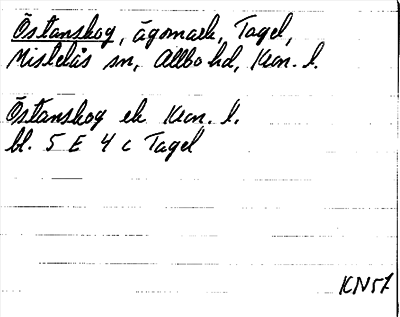 Östanskog, ägomark, Tagel,
Mistelås sn, Allbo hd, Kron. l.
Östanskog ek Kron. l.
bl. 5 E 4 c Tagel
KN57